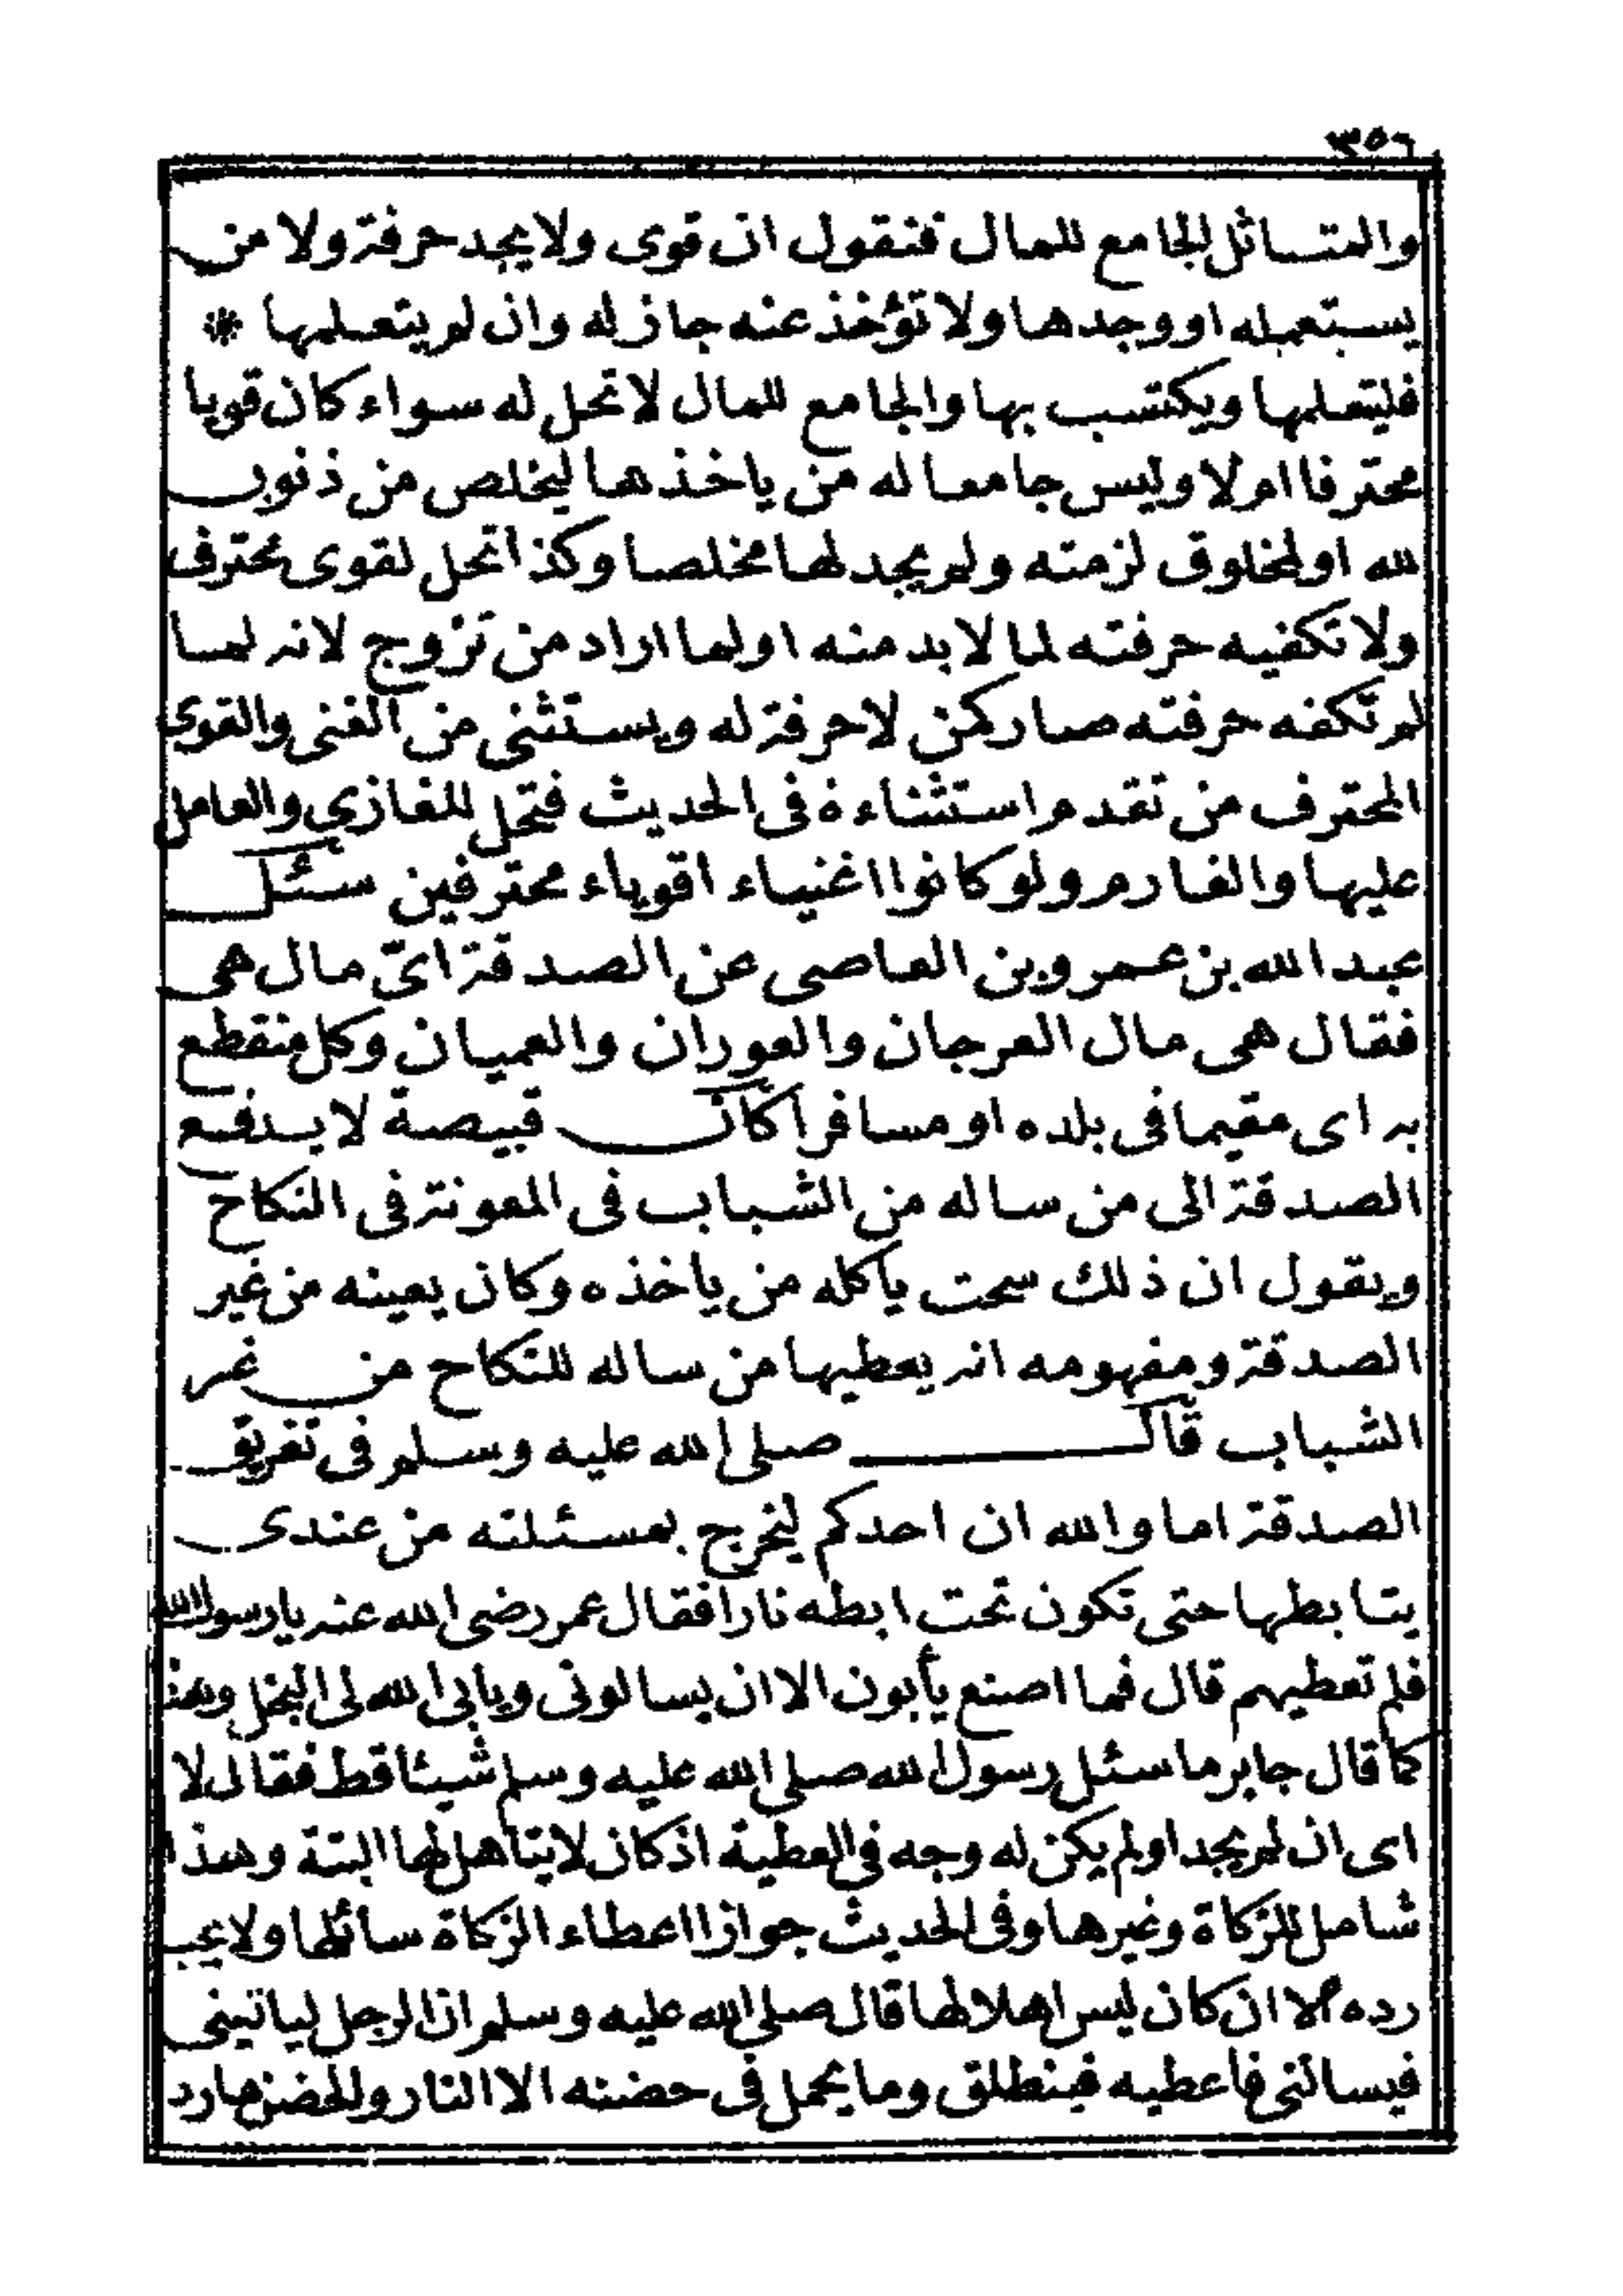 ٣٥٦
والمتسائل الجامع للمال فنقول ان قوى ولا يجد حرفة ولا من
يستعمله او وجدها ولا تؤخذ عنه جاز له وان لم يتعلمها *
فليتعلمها ويكتسب بها والجامع للمال لا تحل له سواء كان قويا
محترفا ام لا وليس جامعا له من ياخذها ليخلص من ذنوب
لله او لمخلوق لزمته ولم يجد لها مخلصا وكذا تحل لقوى محترف
ولا تكفيه حرفته لما لا بد منه او لما اراد من تزوج لانه لما
لم تكفه حرفته صار كمن لا حرفة له ويستثنى من الغنى والقوى
المحترف من تقدم استثناءة فى الحديث فتحل للغازي والعامل
عليها والغارم ولو كانوا اغنياء اقوياء محترفين سئل
عبد الله بن عمرو بن العاصى عن الصدقة اىّ مال هى
فقال هى مال العرجان والعوران والعميان وكل منقطع
به اى مقيما فى بلده او مسافرا كان قبيصة لا يدفع
الصدقة الى من ساله من الشباب فى المعونة فى النكاح
ويقول ان ذلك سحت ياكله من ياخذه وكان يعينه من غير
الصدقة ومفهومه انه يعطيها من ساله للنكاح من غير
الشباب قال صلى الله عليه وسلم فى تفريق
الصدقة اما والله ان احدكم ليخرج بمسئلته من عندى
يتابطها حتى تكون تحت ابطه نارا فقال عمر رضى الله عنه يا رسول الله
فلم تعطيهم قال فما اصنع يأبون الا ان يسالونى ويابى الله لى البخل وهذ
كما قال جابر ما سئل رسول الله صلى الله عليه وسلم شيئا قط فقال لا
اى ان لم يجد او لم يكن له وجه فى العطية اذ كان لا يتاهل لها البتة وهذا
شامل للزكاة وغيرها وفى الحديث جواز اعطاء الزكاة سائلها ولا يجب
رده الا ان كان ليس اهلا لها قال صلى الله عليه وسلم ان الرجل لياتينى
فيسالنى فاعطيه فينطلق وما يحمل فى حضنه الا النار وللحضن ما رد